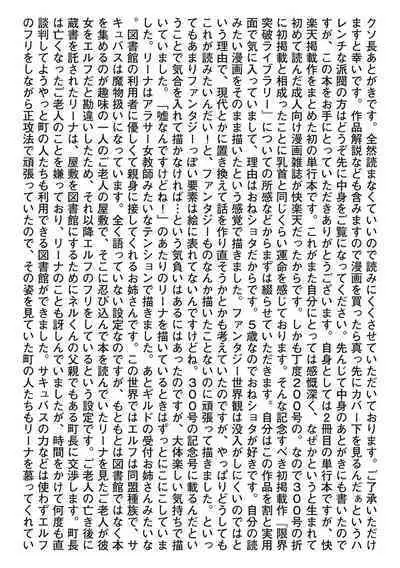 クソ長あとがきです。全然読まなくていいので読みにくくさせていただいております。ご了承いただけ
ますと幸いです。作品解説なども含みますので漫画を買ったら真っ先にカバー下を見るんだぁというハ
レンチな派閥の方はどうぞ先に中身をご覧になってください。先んじて中身のあとがきにも書いたので
すが、この本をお手にとっていただきありがとうございます。自身としては2冊目の単行本ですが、快
楽天掲載作をまとめた初の単行本です。これがまた自分にとっては感慨深く、なぜかというと生まれて
初めて読んだ成人向け漫画雑誌が快楽天だったからです。しかも丁度200号の。なので300号の折
に初掲載と相成ったことに乳首と同じくらい運命を感じております。そんな記念すべき初掲載作『限界
突破ライブラリー』についての所感などからまずは綴らせていただきます。自分はこの作品を割と実用
面で気に入っていまして、理由はおねショタだからです。5歳なのでおねショタが好きです。自分の読
みたい漫画をそのまま描いたという感覚で描きました。ファンタジー世界観は没入がしにくいのではと
いう理由で、現代とかに置き換えて話を作り直そうかとかも考えていたのですが、やっぱりどうしても
これが読みたいんだい!と、ファンタジーものなんか描いたことないのに頑張って描きました。といっ
てもあまりファンタジーっぽい要素は絵に表れてないんですけどね。300号の記念号に載るんだとい
うことで気合を入れて描かなければ!という気負いはあるにはあったのですが、大体楽しい気持ちで描
いていました。「嘘なんですけどね!」のあたりのリーナを描いているときはずっとにこにこしていま
した。リーナはアラサー女教師みたいなテンションで描きました。あとギルドの受付お姉さんみたいな
。図書館の利用者に優しくて親身に接してくれるお姉さんです。この世界ではエルフは同盟種族で、サ
キュバスは魔物扱いになっています。全く語っていない設定なのですが、もともとは図書館ではなく本
を集めるのが趣味の一人のご老人の屋敷で、そこに忍び込んで本を読んでいたリーナを見たご老人が彼
女をエルフだと勘違いしたため、それ以降エルフのフリをしているという設定です。ご老人の亡き後に
蔵書を託されたリーナは、屋敷を図書館にするためにネルくんの父親でもある町長に交渉します。町長
は亡くなったご老人のことを嫌っており、リーナのことも訝しんでいましたが、時間をかけて何度も直
談判してようやっと町の人たちも利用できる図書館ができました。サキュバスの力などは使わずエルフ
のフリをしながら正攻法で頑張っていたので、その姿を見ていた町の人たちもリーナを慕ってくれてい